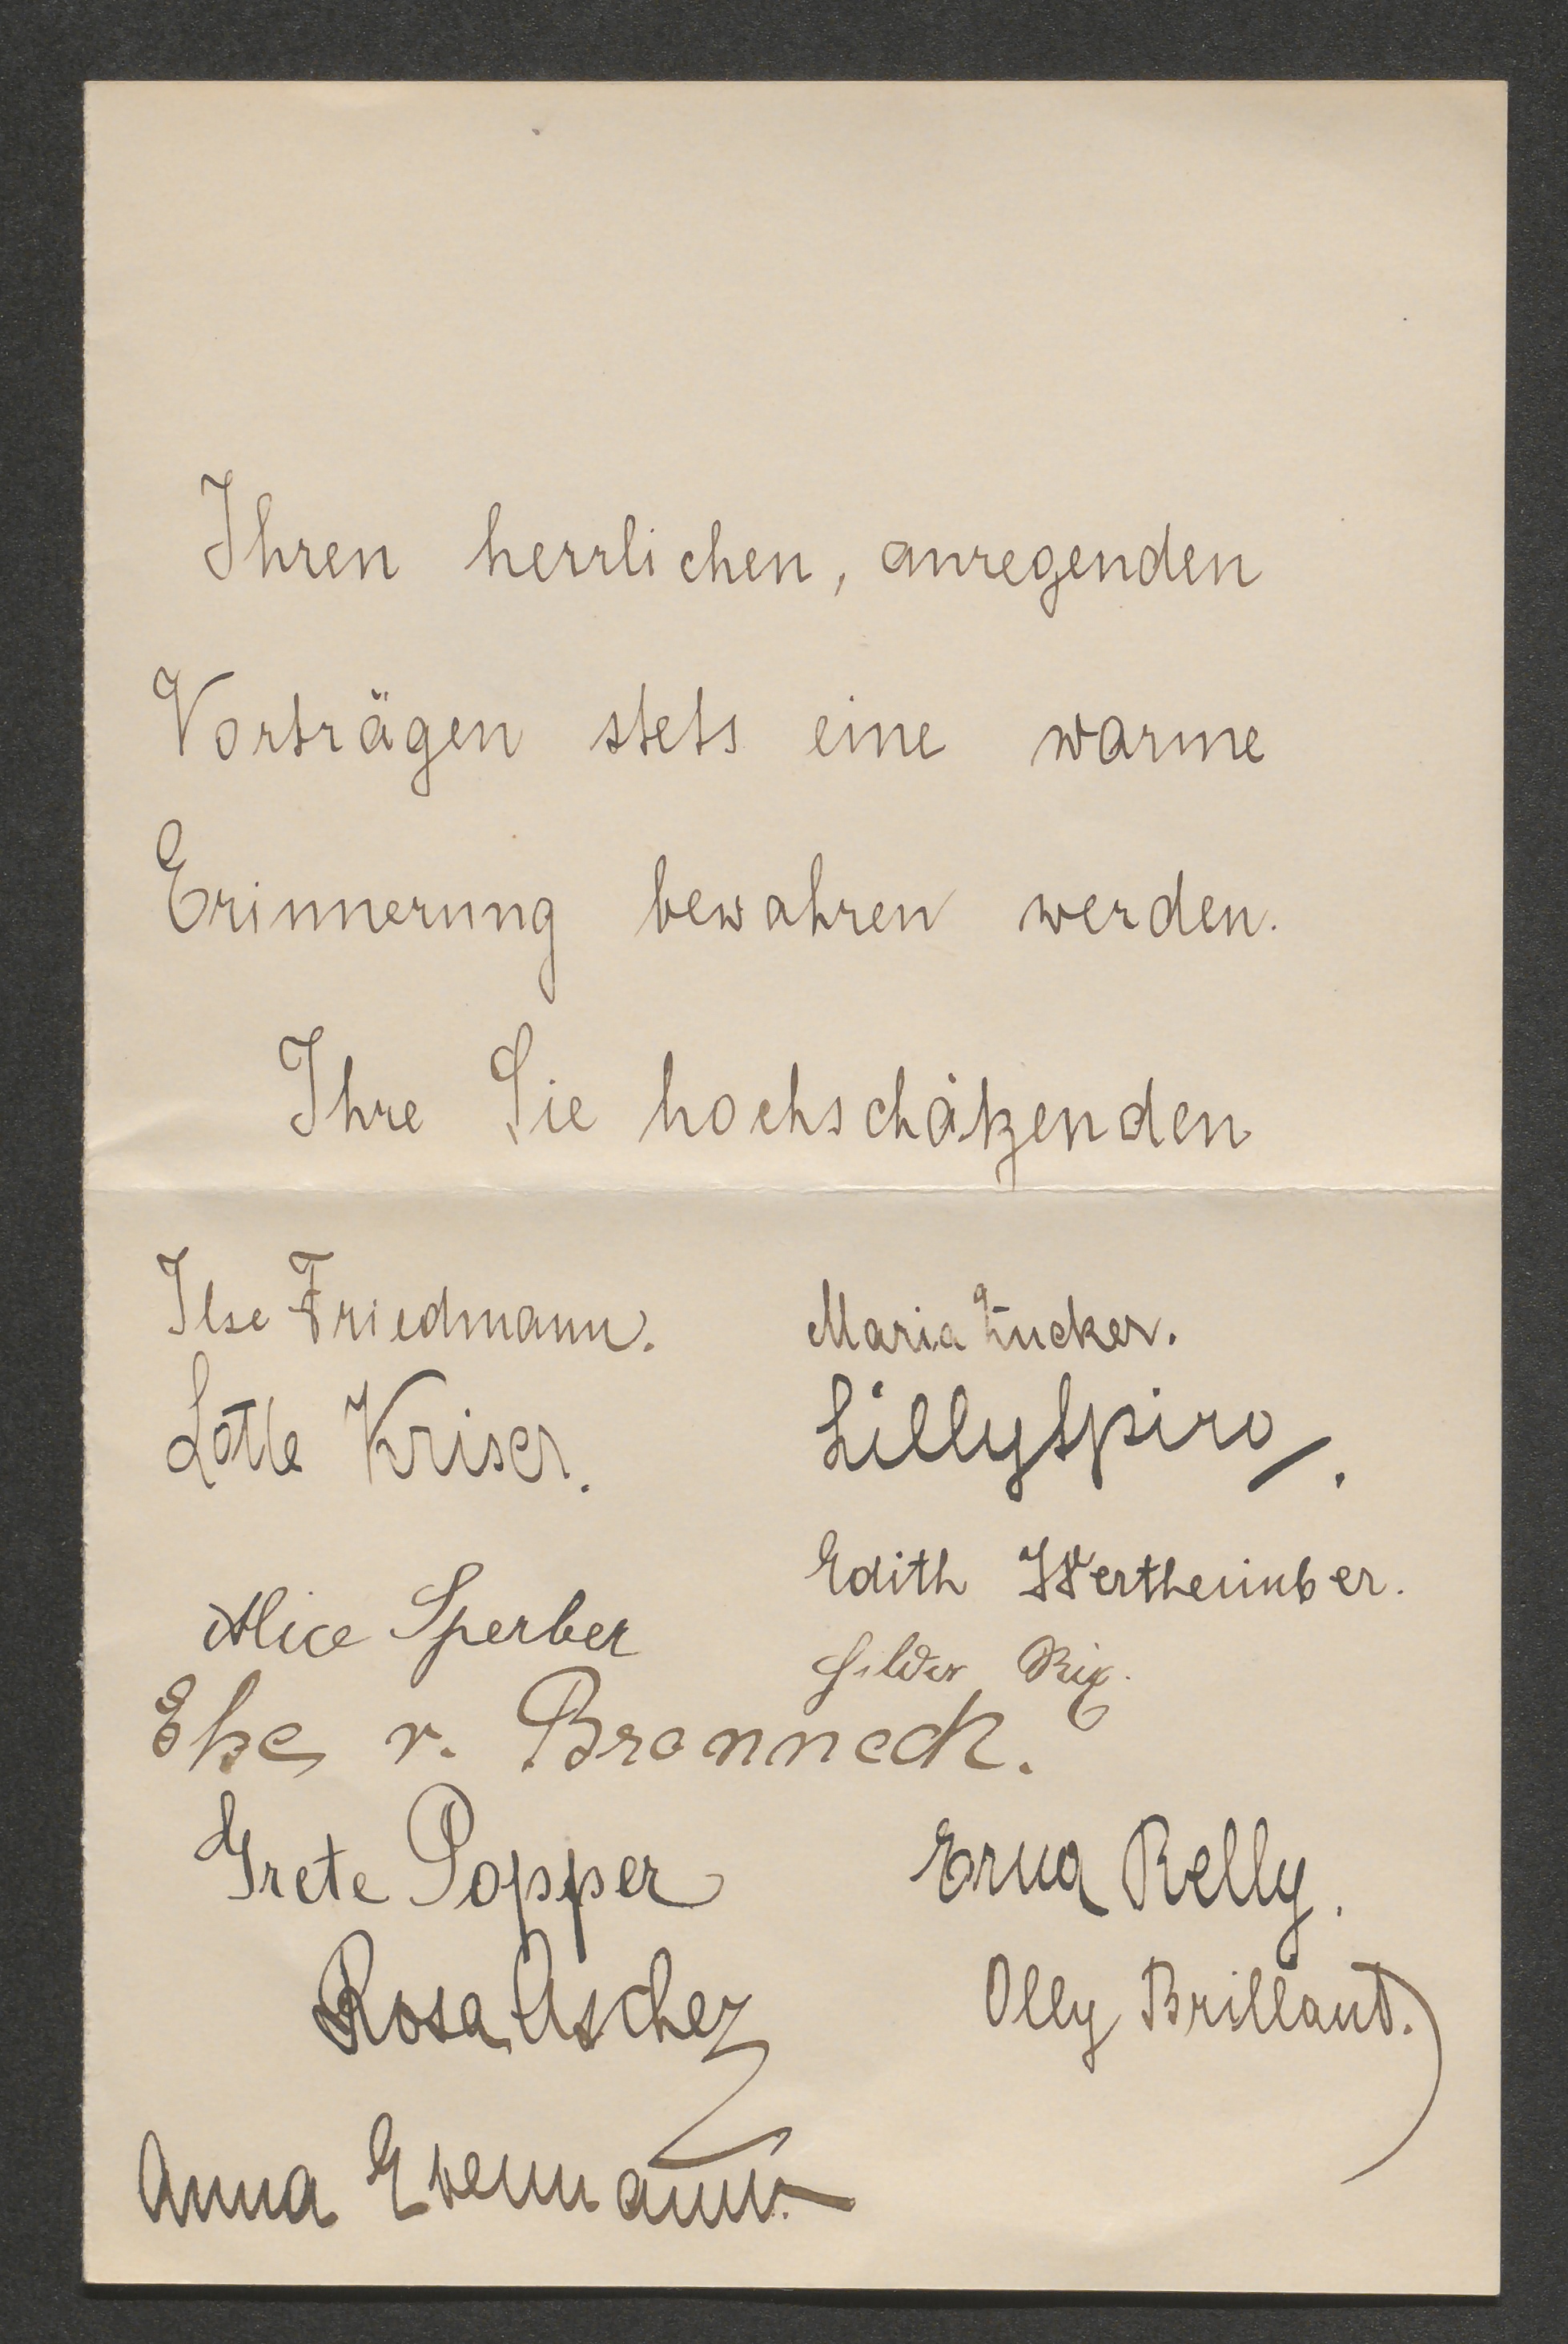 Ihren herrlichen, anregenden
Vorträgen stets eine warme
Erinnerung bewahren werden.
Ihre Sie hochschätzenden
Ilse Friedmann.
Maria Zucker.
Lotte Kriser.
Lilly Spiro.
Edith Wertheimber.
Alice Sperber
Hilda Rix.
Else v. Bronneck.
Grete Popper
Erna Relly.
Rosa Ascher
Olly Brillant.
Anna